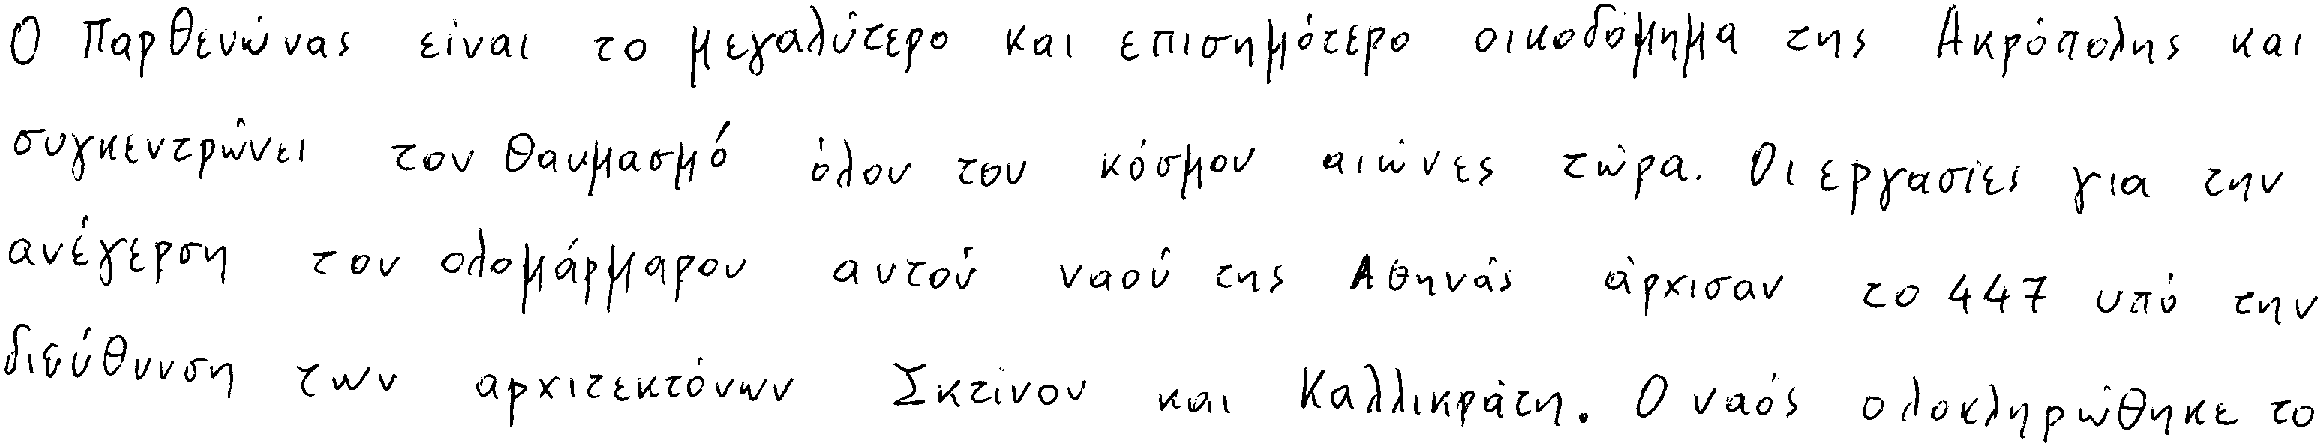 Ο Παρθενώνας είναι το μεγαλύτερο και επισημότερο οικοδόμημα της Ακρόπολης και
συγκεντρώνει τον θαυμασμό όλου του κόσμου αιώνες τώρα. Οι εργασίες για την
ανέγερση του ολομάρμαρου αυτού ναού της Αθηνάς άρχισαν το 447 υπό την
διεύθυνση των αρχιτεκτόνων Σκτίνου και Καλλικράτη. Ο ναός ολοκληρώθηκε το